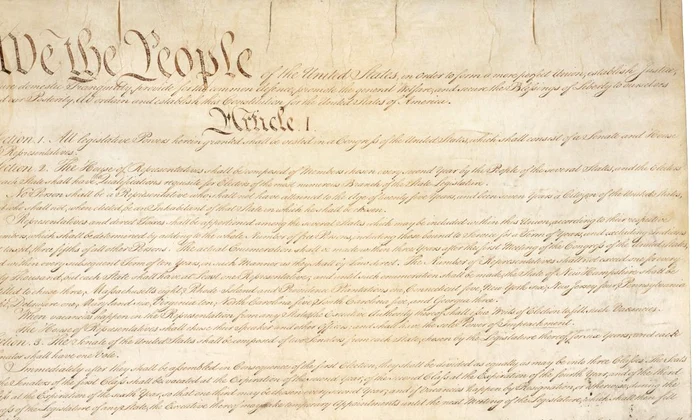 We the People of the United States, in Order to form a more perfect Union, establish Justice,
domestic Tranquility, provide for the common defence, promote the general Welfare, and secure the Blessings of Liberty to ourselves
and our Posterity, do ordain and establish this Constitution for the United States of America.
Article. I.
Section. 1. All legislative Powers herein granted shall be vested in a Congress of the United States, which shall consist of a Senate and House
of Representatives.
Section. 2. The House of Representatives shall be composed of Members chosen every second Year by the People of the several States, and the Electors
in each State shall have Qualifications requisite for Electors of the most numerous Branch of the State Legislature.
No Person shall be a Representative who shall not have attained to the Age of twenty five Years, and been seven Years a Citizen of the United States,
and who shall not, when elected, be an Inhabitant of that State in which he shall be chosen.
Representatives and direct Taxes shall be apportioned among the several States which may be included within this Union, according to their respective
Numbers, which shall be determined by adding to the whole Number of free Persons, including those bound to Service for a Term of Years, and excluding Indians
not taxed, three fifths of all other Persons. The actual Enumeration shall be made within three Years after the first Meeting of the Congress of the United States,
and within every subsequent Term of ten Years, in such Manner as they shall by Law direct. The Number of Representatives shall not exceed one for every
thirty Thousand, but each State shall have at Least one Representative; and until such enumeration shall be made, the State of New Hampshire shall be
entitled to chuse three, Massachusetts eight, Rhode-Island and Providence Plantations one, Connecticut five, New-York six, New Jersey four, Pennsylvania
eight, Delaware one, Maryland six, Virginia ten, North Carolina five, South Carolina five, and Georgia three.
When vacancies happen in the Representation from any State, the Executive Authority thereof shall issue Writs of Election to fill such Vacancies.
The House of Representatives shall chuse their Speaker and other Officers; and shall have the sole Power of Impeachment.
Section. 3. The Senate of the United States shall be composed of two Senators from each State, chosen by the Legislature thereof, for six Years; and each
Senator shall have one Vote.
Immediately after they shall be assembled in Consequence of the first Election, they shall be divided as equally as may be into three Classes. The Seats
of the Senators of the first Class shall be vacated at the Expiration of the second Year, of the second Class at the Expiration of the fourth Year, and of the third
Class at the Expiration of the sixth Year, so that one third may be chosen every second Year; and if Vacancies happen by Resignation, or otherwise, during the
Recess of the Legislature of any State, the Executive thereof may make temporary Appointments until the next Meeting of the Legislature, which shall then fill